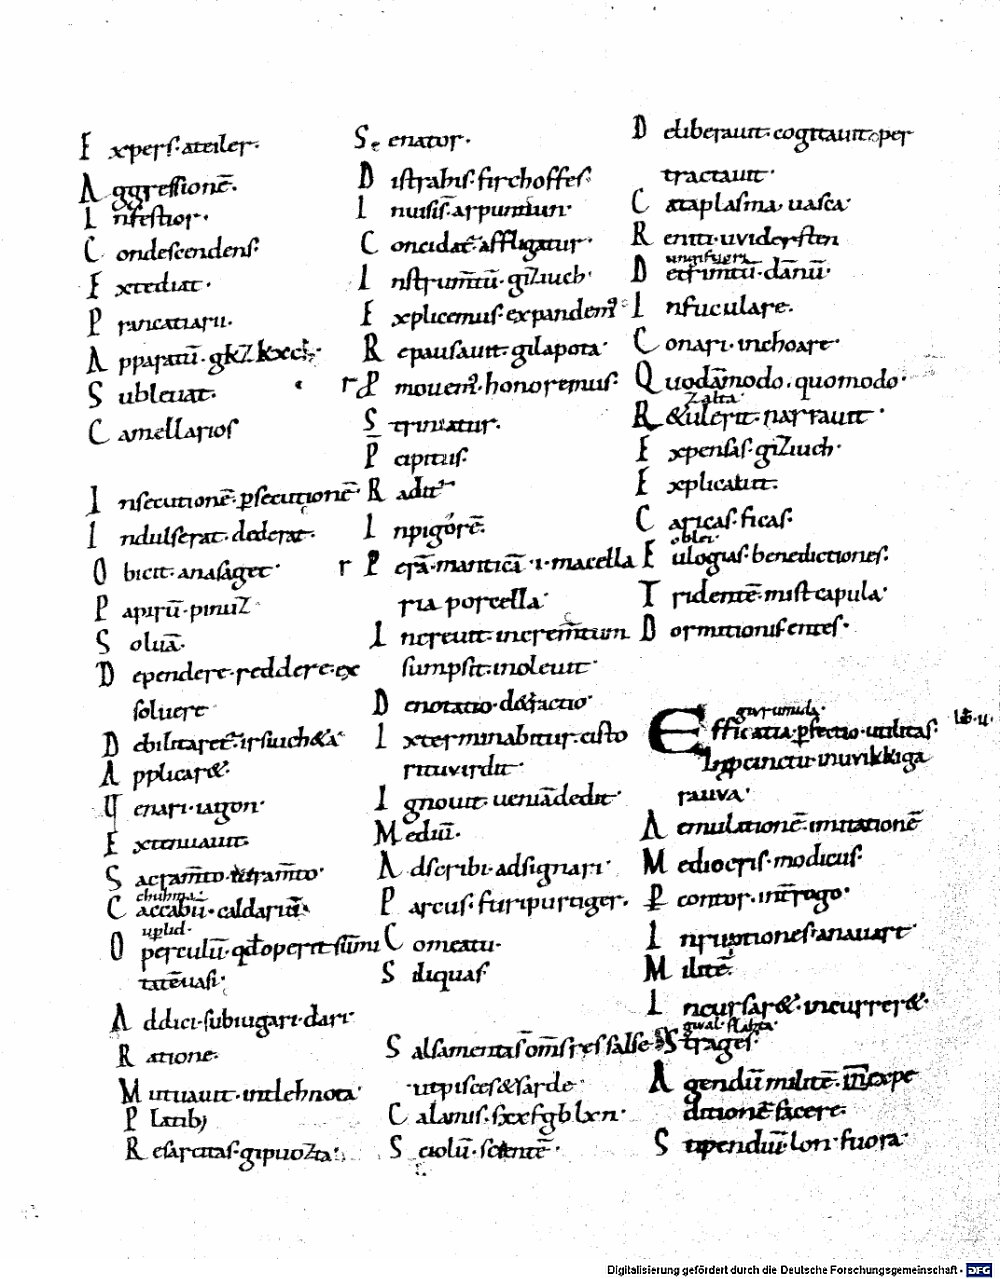 Expers. ateiler.
Aggressionē.
Infestior.
Condescendens.
Extediat.
Apparatū. gkZkxch.
Subleuat.
Camellarios
Insecutionē. psecutionē.
Indulserat. dederat.
Obicit. anasaget.
Papirū. pinuZ
Soluā.
Dependere. reddere. ex
soluere
Debilitaret. irsiuch&a
Applicar&.
Uenari. iagon.
Extenuauit
Sacram̄to.
chuhma
Caccabū. caldariū.
uplid.
Operculū. qd operit sūmi
tatē uasi.
Addici. subiugari. dari
Ratione.
Mutuauit. intlehnota.
Resarcitas. gipuoZta.
Senator.
Distrahis. firchoffes.
Inuisis. arpunniun.
Concidat. affligatur.
Instrum̄tū. giZiuch.
Explicemus. expandem.
Repausauit. gilapota.
r Pmouem. honoremus.
Striuiatur.
Capitus.
Radit
Inpigorē.
r Perā. manticā .i. macella
ria porcella.
Increuit. increm̄tum
sumpsit. inoleuit.
Denotatio. d&factio.
Ixterminabitur. cisto
rituuirdit.
Ignouit. ueniā dedit.
Mediū.
Adscribi. adsignari.
Parcus. furipurtiger.
Comeatu.
Siliquas
Salsamenta. om̄s res salse
ut pisces & sarde
Calamis. fxxfgblxn.
Sciolū. scientē.
Deliberauit. cogitauit. per
tractauit.
Cataplasma. uasca.
Reniti. uuidersten
ungifuori
Detrim̄tū. dānū.
Infuculare.
Conari. inchoare.
Quodāmodo. quomodo.
Zalta.
R&ulerit. narrauit.
Expensas. giZiuch.
Explicabit.
Caricas. ficas.
oblei.
Eulogias. benedictiones.
Tridentē. mistcapula.
Dormitionis entes.
giurumida.
Efficatia. pfectio. utilitas. lib. ii.
Inpcinctu. inuuikkiga
rauua.
Aemulationē. imitationē
Mediocris. modicus.
Pcontor. int̄rogo.
Inruptiones. anauart
Militē.
Incursar&. incurrer&.
gual. slahta.
Strages.
Agendū militē. in expe
ditionē facere.
Stipendiū. lon. fuora.
Digitalisierung gefördert durch die Deutsche Forschungsgemeinschaft - DFG